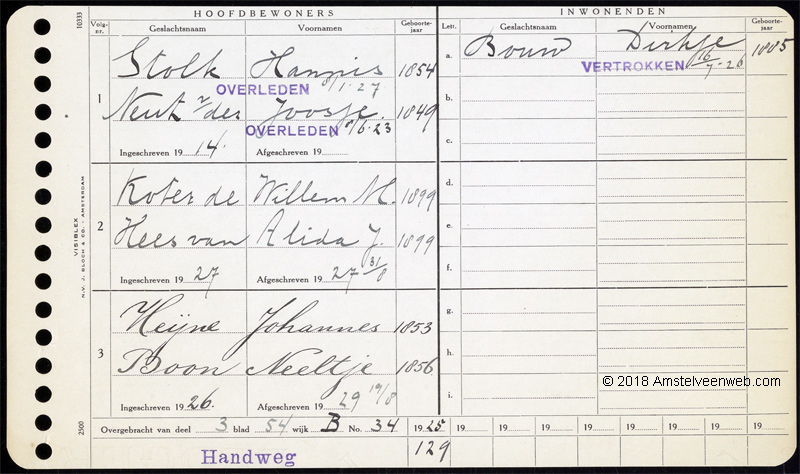 HOOFDBEWONERS
Volg-nr. Geslachtsnaam Voornamen Geboorte-jaar
1 Stolk Hannis 1854
OVERLEDEN 8/1·27
Neut v/der Joosje 1849
OVERLEDEN 9/6·23
Ingeschreven 19 14. Afgeschreven 19
2 Koter de Willem M. 1899
Hees van Alida J. 1899
Ingeschreven 19 27 Afgeschreven 19 27 31/8
3 Heijne Johannes 1853
Boon Neeltje 1856
Ingeschreven 19 26. Afgeschreven 19 29 19/8
INWONENDEN
Lett. Geslachtsnaam Voornamen Geboorte-jaar
a. Bouw Dirkje 1885
VERTROKKEN 16/7-26
b.
c.
d.
e.
f.
g.
h.
i.
© 2018 Amstelveenweb.com
Overgebracht van deel 3 blad 54 wijk B No. 34 19 25 19 19 19 19 19 19 19 19
Handweg 129
10333
VISIBLEX
N.V. J. BLOCH & CO. - AMSTERDAM
2500